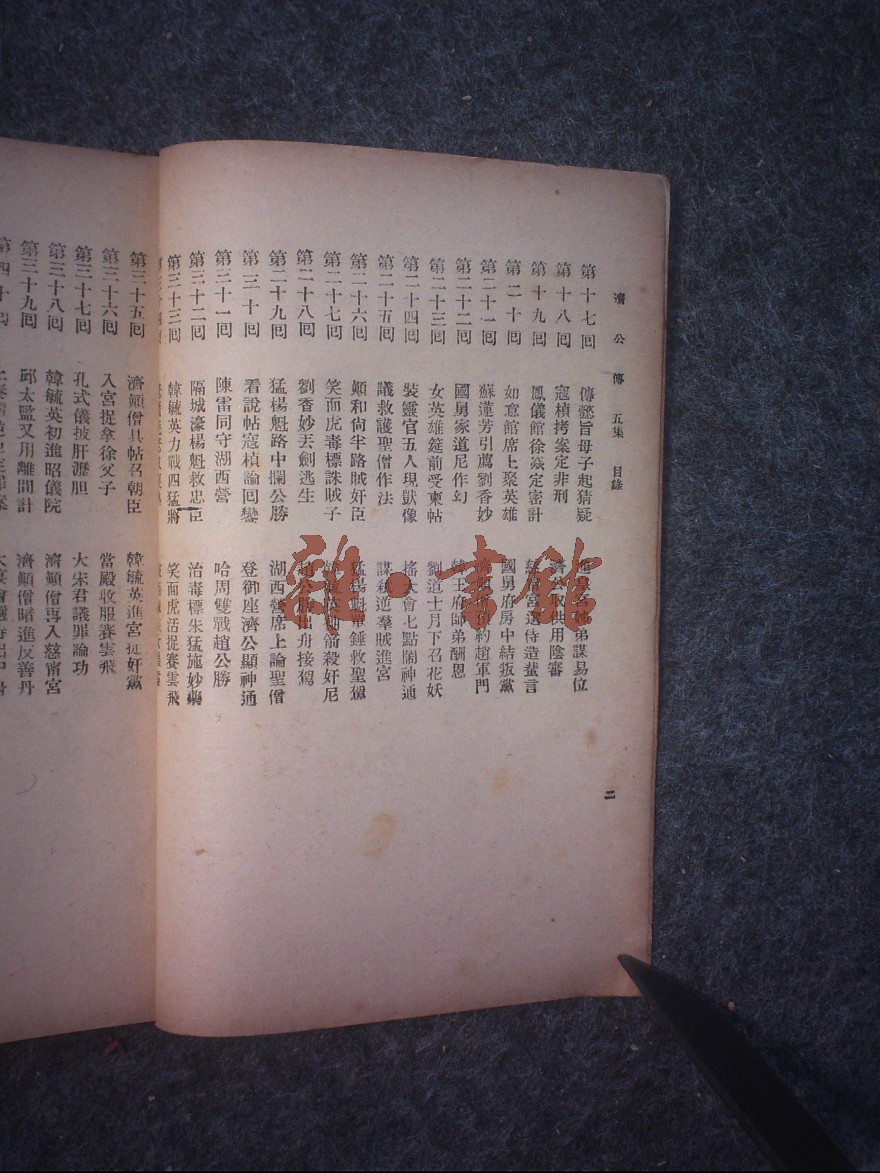 濟公傳 五集 目錄
二
第十七回 傳懿旨母子起猜疑 姊弟謀易位
第十八回 寇楨拷案定非刑 濟公取供用陰審
第十九回 鳳儀館徐焱定密計 宮選侍造蜚言
第二十回 如意館席上聚英雄 國舅府房中結叛黨
第二十一回 蘇蓮芳引薦劉香妙 約趙軍門
第二十二回 國舅家道尼作幻 王府師弟酬恩
第二十三回 女英雄筵前受柬帖 劉道士月下召花妖
第二十四回 裝靈官五人現獸像 搖天會七點鬧神通
第二十五回 議救護聖僧作法 謀篡逆羣賊進宮
第二十六回 顛和尚半路賊奸臣 猛楊魁單錘救聖駕
第二十七回 笑面虎毒標誅賊子 箭殺奸尼
第二十八回 劉香妙丟劍逃生 趙公勝出舟接駕
第二十九回 猛楊魁路中攔公勝 湖西營席上論聖僧
第三十回 看說帖寇楨論回鑾 登御座濟公顯神通
第三十一回 陳雷同守湖西營 哈周雙戰趙公勝
第三十二回 隔城濠楊魁救忠臣 治毒標朱猛施妙藥
第三十三回 韓毓英力戰四猛將 笑面虎活捉賽雲飛
第三十五回 濟顛僧具帖召朝臣 韓毓英進宮捉奸黨
第三十六回 入宮捉拿徐父子 當殿收服賽雲飛
第三十七回 孔式儀披肝瀝胆 大宋君議罪論功
第三十八回 韓毓英初進昭儀院 濟顛僧再入慈甯宮
第三十九回 邱太監又用離間計 濟顛僧暗進反善丹
第四十回
雜·書館